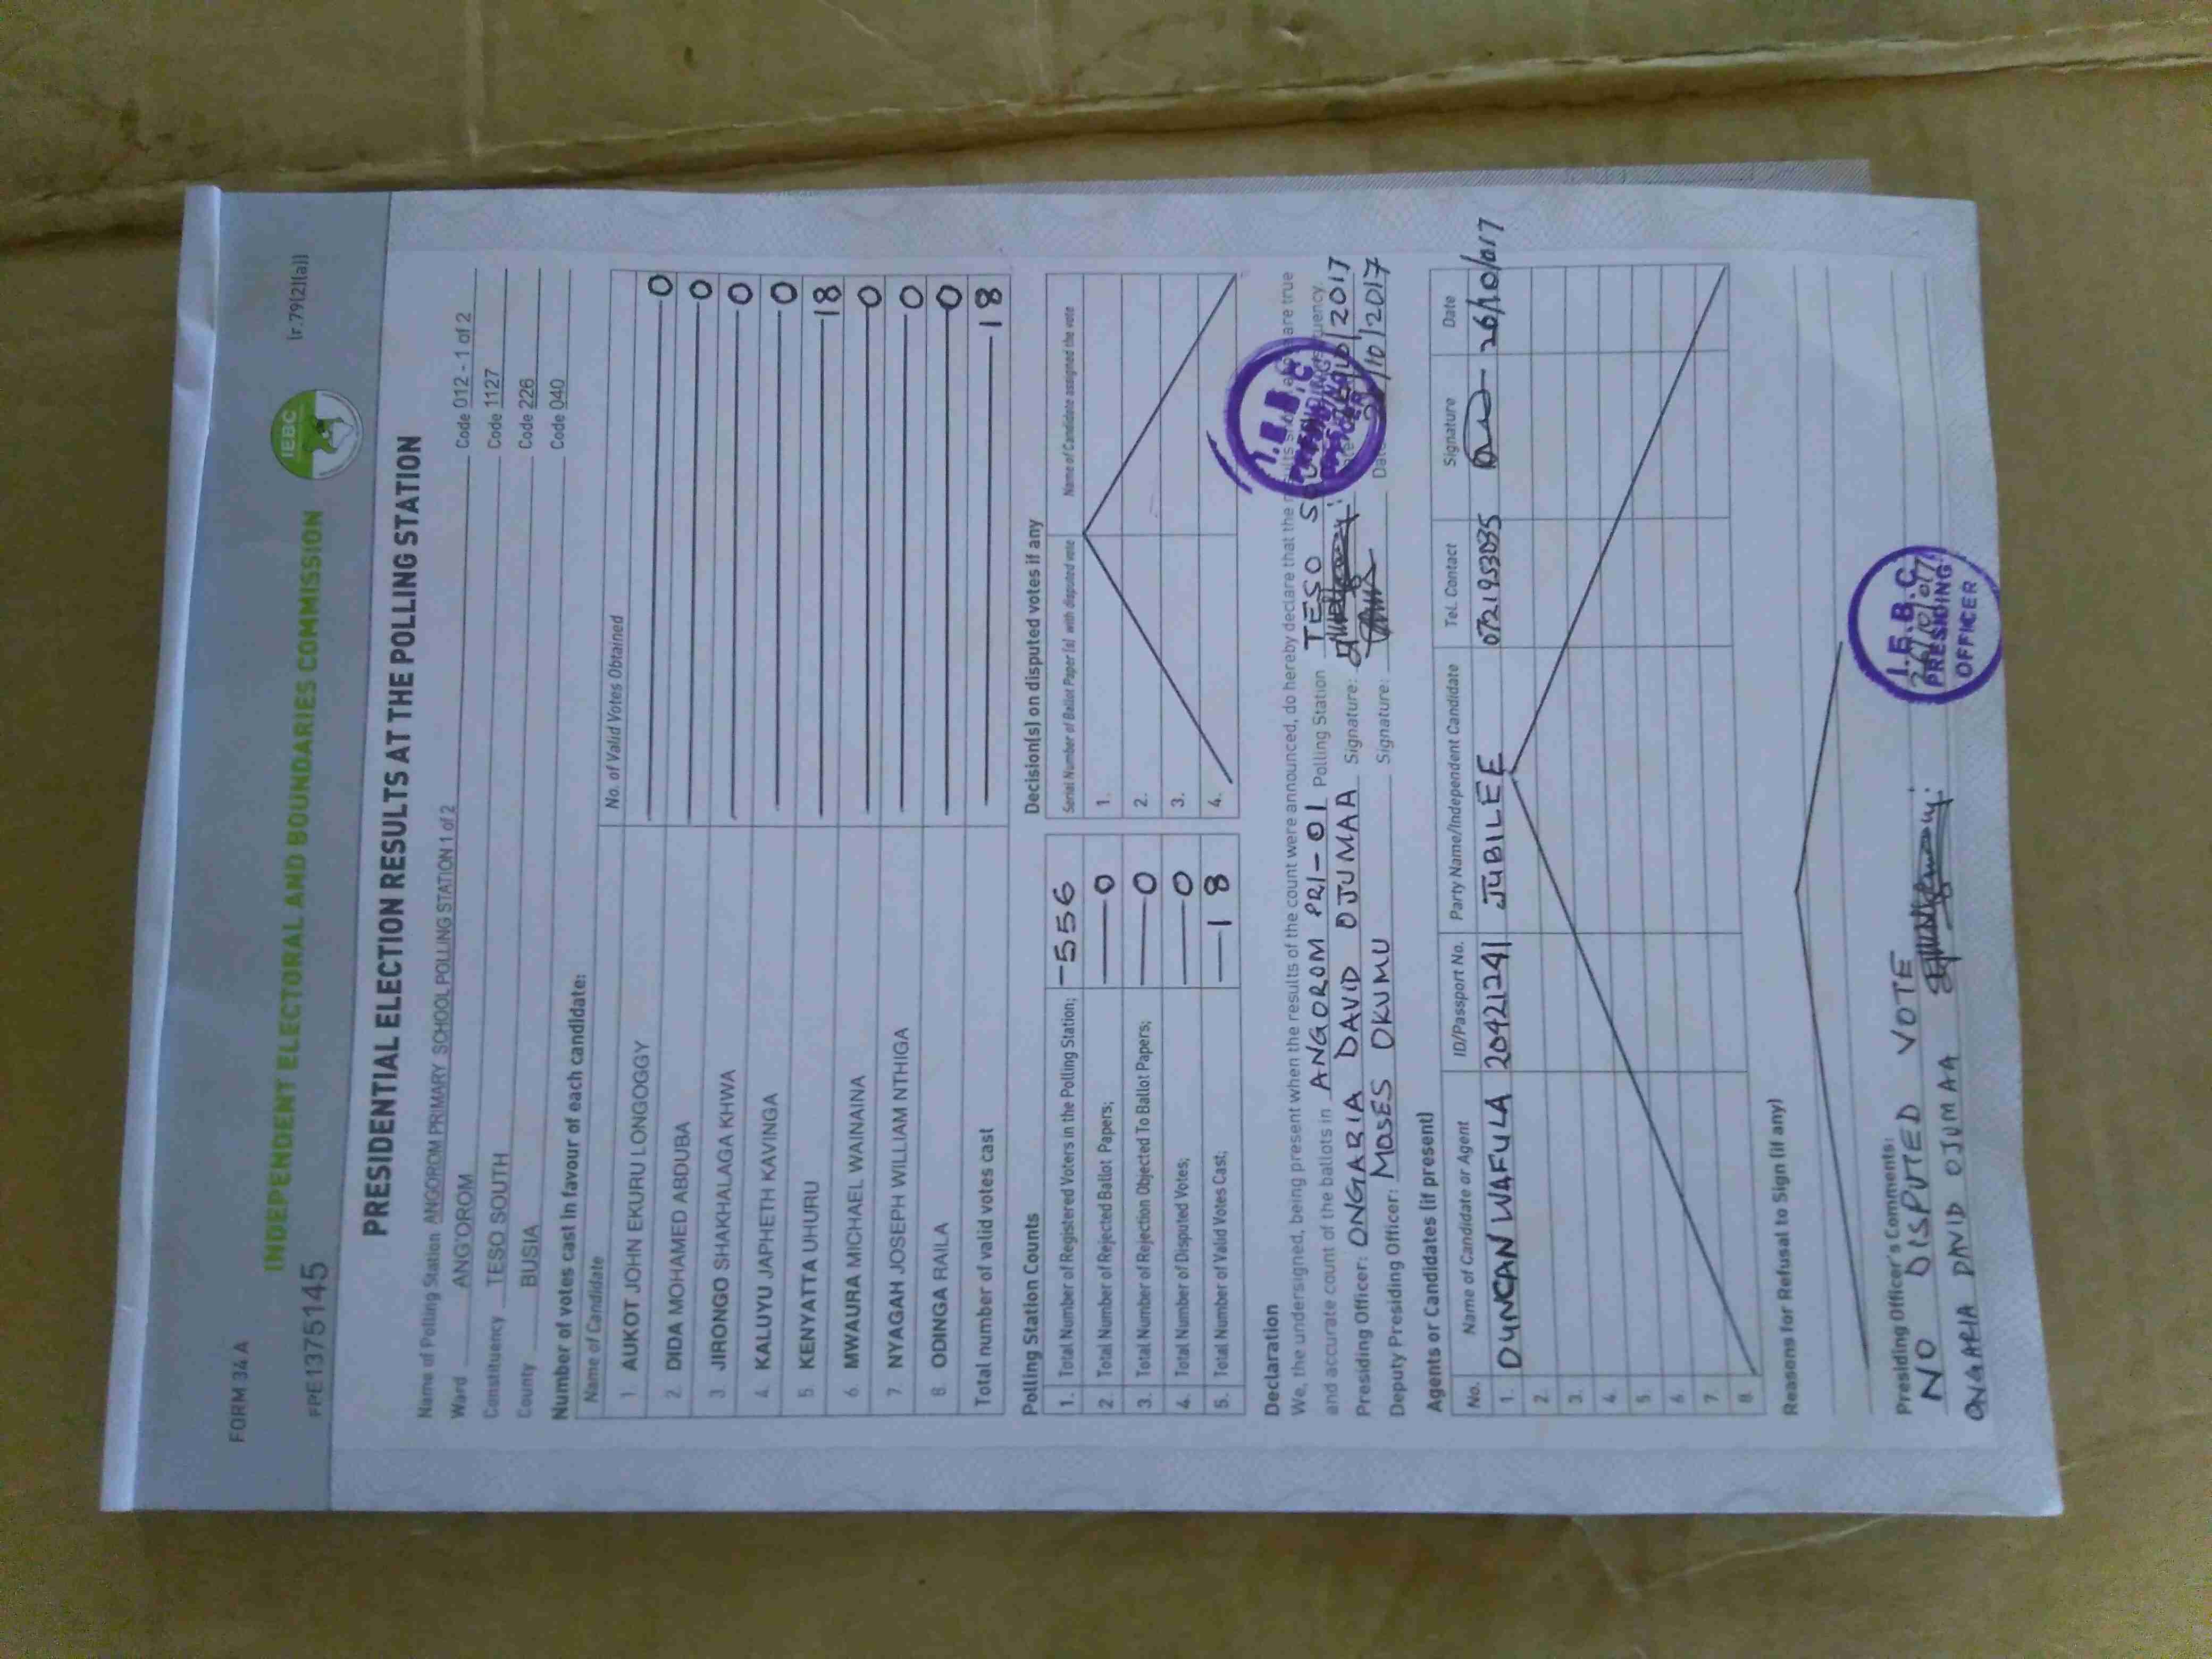 FORM 34 A
FPE1375145
INDEPENDENT ELECTORAL AND BOUNDARIES COMMISSION
IEBC
(r.79(2)(a))
PRESIDENTIAL ELECTION RESULTS AT THE POLLING STATION
Name of Polling Station ANGOROM PRIMARY SCHOOL POLLING STATION 1 of 2 Code 012 - 1 of 2
Ward ANG'OROM Code 1127
Constituency TESO SOUTH Code 226
County BUSIA Code 040
Number of votes cast in favour of each candidate:
Name of Candidate No. of Valid Votes Obtained
1. AUKOT JOHN EKURU LONGOGGY 0
2. DIDA MOHAMED ABDUBA 0
3. JIRONGO SHAKHALAGA KHWA 0
4. KALUYU JAPHETH KAVINGA 0
5. KENYATTA UHURU 18
6. MWAURA MICHAEL WAINAINA 0
7. NYAGAH JOSEPH WILLIAM NTHIGA 0
8. ODINGA RAILA 0
Total number of valid votes cast 18
Polling Station Counts
1. Total Number of Registered Voters in the Polling Station; 556
2. Total Number of Rejected Ballot Papers; 0
3. Total Number of Rejection Objected To Ballot Papers; 0
4. Total Number of Disputed Votes; 0
5. Total Number of Valid Votes Cast; 18
Decision(s) on disputed votes if any
Serial Number of Ballot Paper (s) with disputed vote Name of Candidate assigned the vote
1.
2.
3.
4.
Declaration
We, the undersigned, being present when the results of the count were announced, do hereby declare that the are true
and accurate count of the ballots in ANGOROM PRI-01 Polling Station TESO
Presiding Officer: ONGARIA DAVID OJUMAA Signature: 2017
Deputy Presiding Officer: MOSES OKUMU Signature: /10/2017
I.E.B.C
PRESIDING
OFFICER
Agents or Candidates (if present)
No. Name of Candidate or Agent ID/Passport No. Party Name/Independent Candidate Tel. Contact Signature Date
1. DUNCAN WAFULA 20421241 JUBILEE 0721953035 26/10/017
2.
3.
4.
5.
6.
7.
8.
Reasons for Refusal to Sign (if any)
Presiding Officer's Comments:
NO DISPUTED VOTE
ONGARIA DAVID OJUMAA
I.E.B.C
26/10/017
PRESIDING
OFFICER